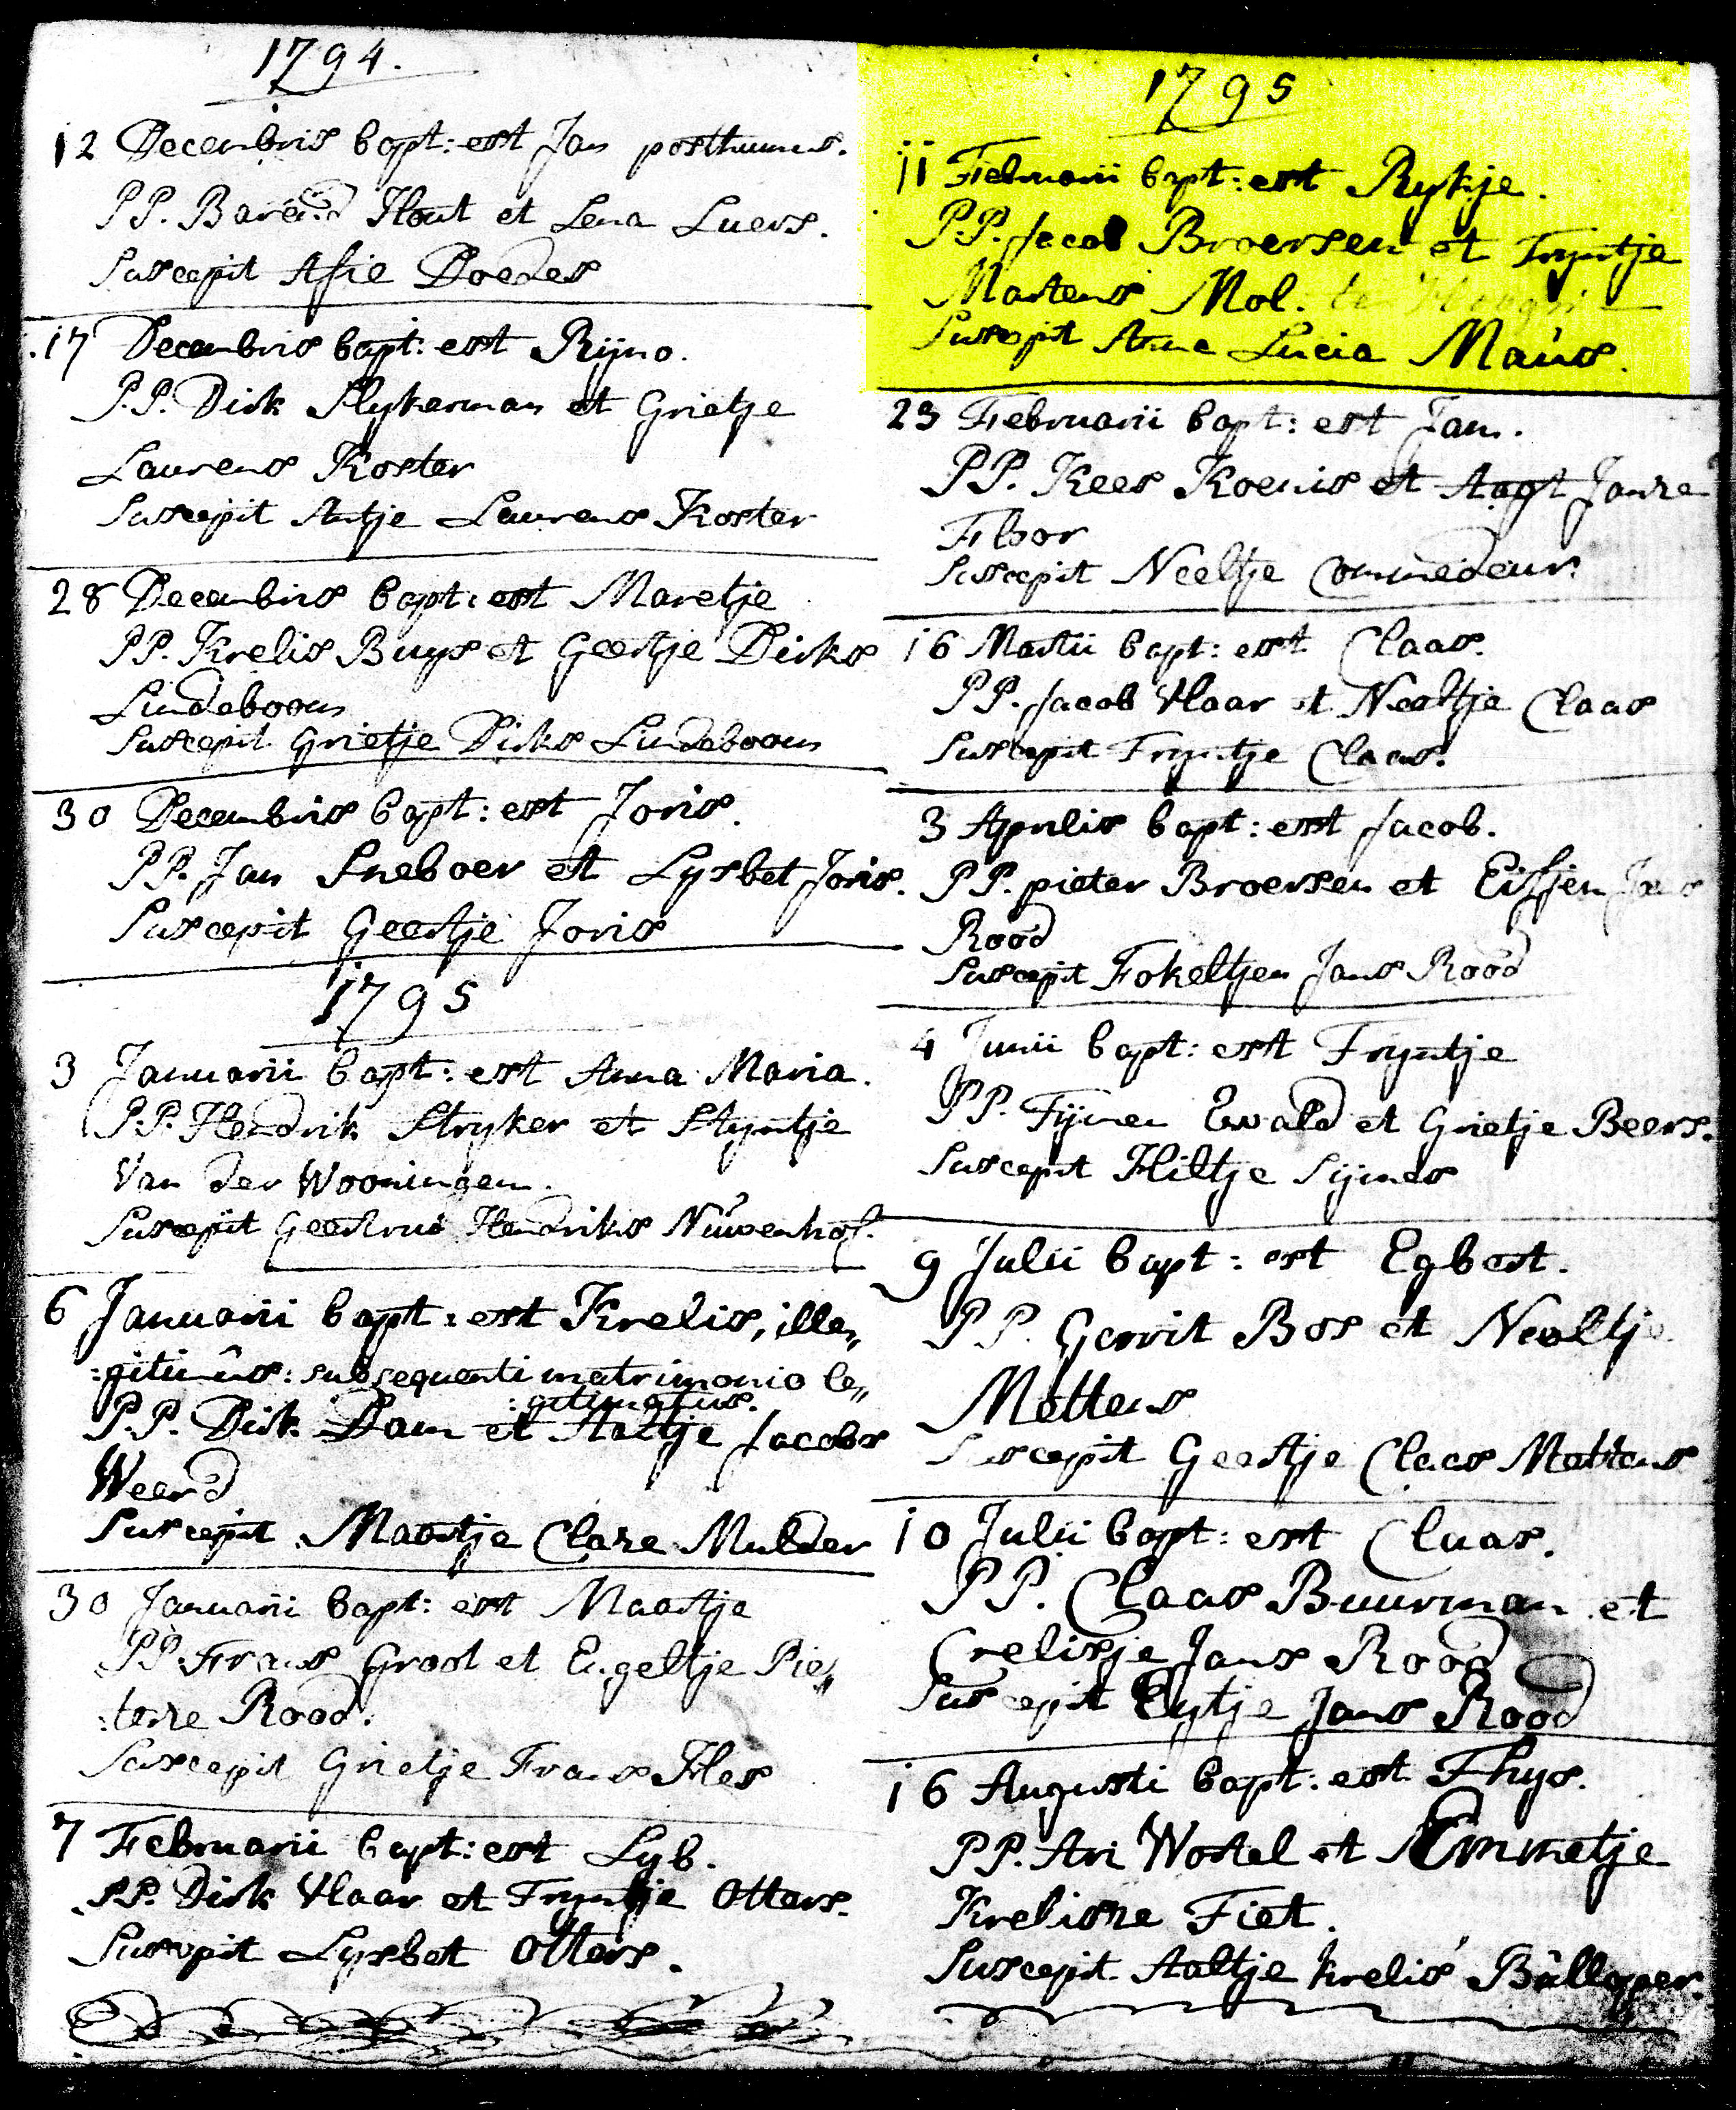 1794.
12 Decembris bapt: est Jan posthumus.
PP. Barend Hout et Lena Luers.
Suscepit Afie Doedes
17 Decembris bapt: est Rijno.
P.P. Dirk Slykerman et Grietje
Laurens Koster
Suscepit Antje Laurens Koster
28 Decembris bapt: est Maretje
PP. Krelis Buys et Geertje Dirks
Lindeboom
Suscepit Grietje Dirks Lindeboom
30 Decembris bapt: est Joris.
PP. Jan Sneboer et Lysbet Joris.
Suscepit Geertje Joris
1795
3 Januarii bapt: est Anna Maria.
P.P. Hendrik Stryker et Styntje
Van der Wooningen.
Suscepit Geertrui Hendriks Núwenhof.
6 Januarii bapt: est Krelis, ille„
:gitimûs: subsequenti matrimonio le„
:gitimatus.
P.P. Dirk Dam et Aaltje Jacobs
Weerd
Suscepit Maartje Claze Mulder
30 Januarii bapt: est Maartje
PP. Frans Groot et Engeltje Pie„
:terze Rood.
Suscepit Grietje Frans Hes
7 Februarii bapt: est Lyb.
P.P. Dirk Vlaar et Tryntje Otters.
Suscepit Lysbet Otters.
1795
11 Februarii bapt: est Rykje.
P.P. Jacob Broersen et Tryntje
Martens Mol.
Suscepit Anna Lucia Maús.
23 Februarii bapt: est Jan.
PP. Kees Koenis et Aagt Janze
Floor
Suscepit Neeltje Commedeur.
16 Martii bapt: est Claas.
PP. Jacob Vlaar et Neeltje Claas
Suscepit Tryntje Claas.
3 Aprilis bapt: est Jacob.
PP. pieter Broersen et Eifjen Jans
Rood
Suscepit Fokeltjen Jans Rood
4 Junii bapt: est Tryntje
PP. Tijmen Ewald et Grietje Beers.
Suscepit Hiltje Sijmes
9 Julii bapt: est Egbert.
PP. Gerrit Bos et Neeltje
Mettens
Suscepit Geertje Claas Mettens
10 Julii bapt: est Claas.
PP. Claas Buurman et
Crelisje Jans Rood
Suscepit Eytje Jans Rood
16 Augusti bapt: est Thys.
PP. Ari Wortel et Emmetje
Krelisze Fiet.
Suscepit Aaltje Krelis Bállooper.